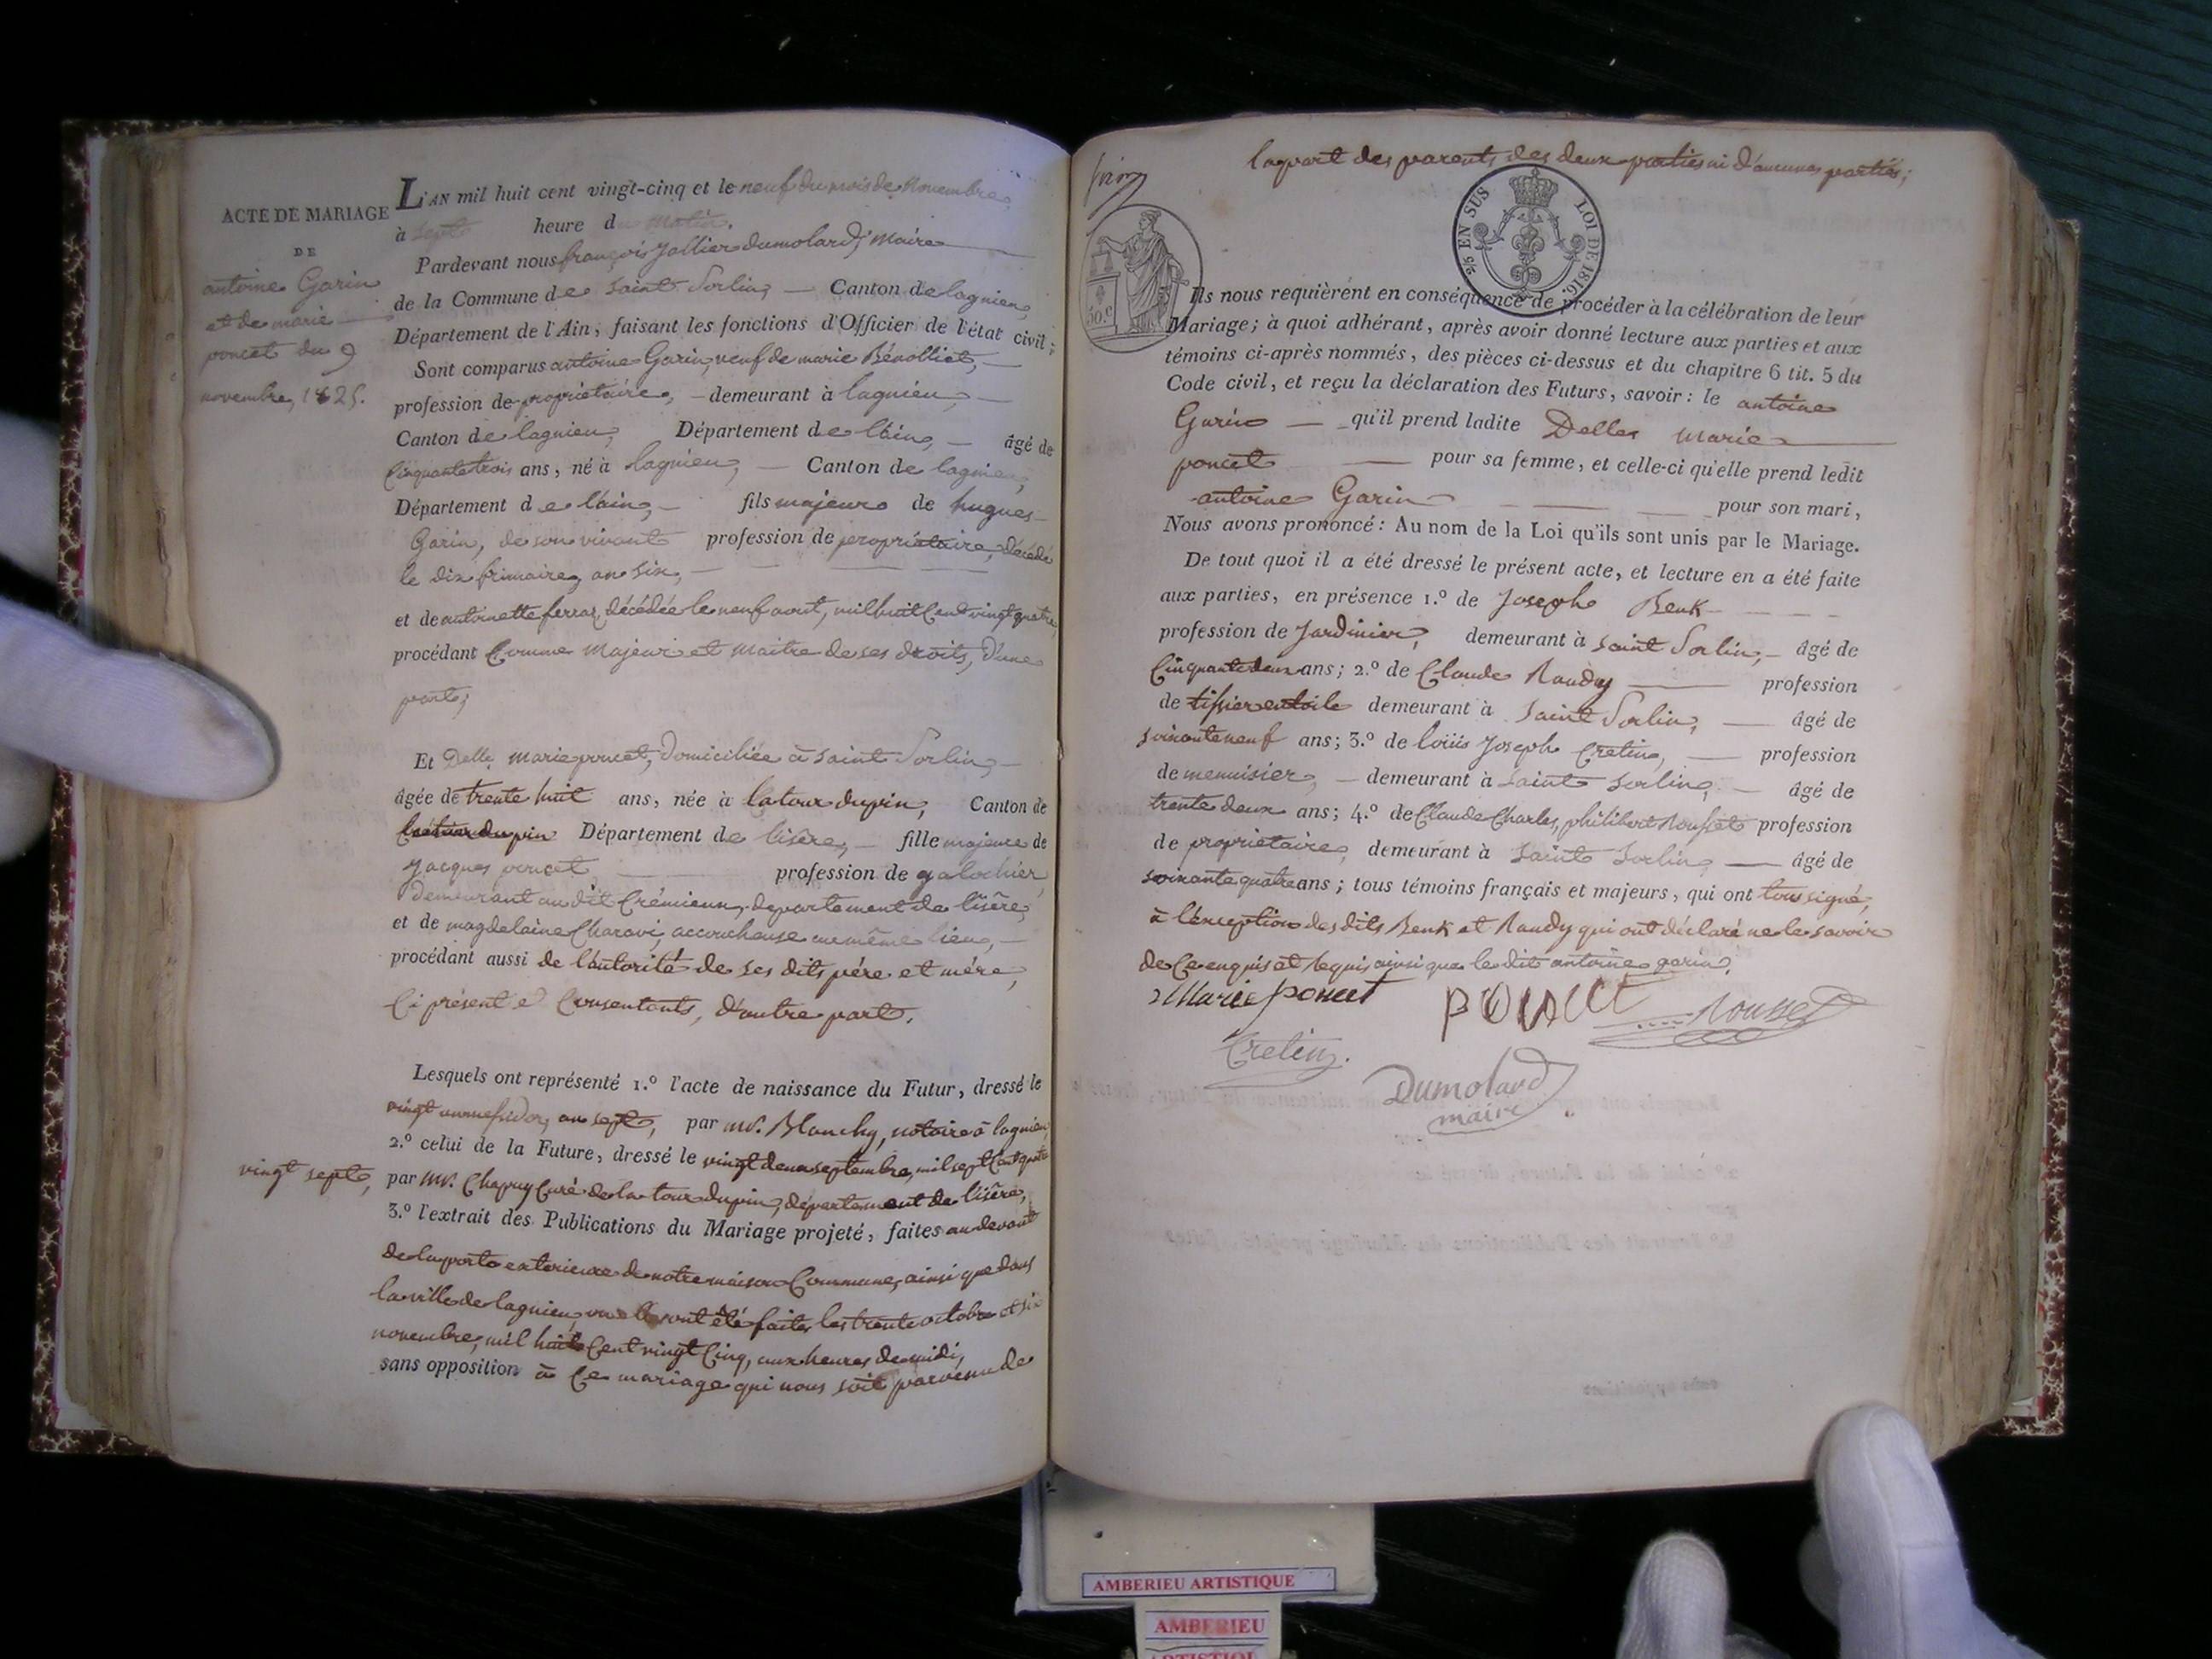 ACTE DE MARIAGE
DE
antoine Garin
et de marie
poncet du 9
novembre, 1825.
L'AN mil huit cent vingt-cinq et le neuf du mois de novembre
à sept heure du matin.
Pardevant nous françois Jallier dumolard, maire
de la Commune de saint Sorlin, — Canton de lagnieu,
Département de l'Ain, faisant les fonctions d'Officier de l'état civil;
Sont comparus antoine Garin, veuf de marie Bénolliet, —
profession de propriétaire, — demeurant à lagnieu, —
Canton de lagnieu, Département de l'ain, — âgé de
Cinquante trois ans, né à lagnieu, — Canton de lagnieu,
Département de l'ain, — fils majeur de hugues
Garin, de son vivant profession de propriétaire, décédé
le dix frimaire, an six,
et de antoinette ferrar, décédée le neuf aout, mil huit Cent vingt quatre
procédant Comme majeur et maitre de ses droits, d'une
part;
Et Delle marie poncet, domiciliée à saint Sorlin, —
âgée de trente huit ans, née à la tour dupin, Canton de
la tour dupin Département de l'isère, — fille majeure de
Jacques poncet, — profession de galochier,
demeurant au dit Crémieux, departement de l'isère,
et de magdelaine Charavi, accoucheuse au même lieu, —
procédant aussi de l'autorité de ses dits père et mére,
Ci présent et Consentants, d'autre part.
Lesquels ont représenté 1.º l'acte de naissance du Futur, dressé le
vingt un messidor, an sept, par mr. Blanchy, notaire à lagnieu,
2.º celui de la Future, dressé le vingt deux septembre, mil sept Cent quatre
vingt sept, par mr. Chapuy Curé de la tour dupin, département de l'isère,
3.º l'extrait des Publications du Mariage projeté, faites au devant
de la porte exterieure de notre maison Commune, ainsi que dans
la ville de lagnieu, ont été faites les trente octobre et six
novembre, mil huit Cent vingt Cinq, aux heures de midi,
sans opposition à Ce mariage qui nous soit parvenu de
la part des parents des deux parties ni d'aucunes parties;
2/5 EN SUS LOI DE 1816.
50.c
Ils nous requièrent en conséquence de procéder à la célébration de leur
Mariage; à quoi adhérant, après avoir donné lecture aux parties et aux
témoins ci-après nommés, des pièces ci-dessus et du chapitre 6 tit. 5 du
Code civil, et reçu la déclaration des Futurs, savoir: le antoine
Garin — qu'il prend ladite Delle marie
poncet — pour sa femme, et celle-ci qu'elle prend ledit
antoine Garin — pour son mari,
Nous avons prononcé: Au nom de la Loi qu'ils sont unis par le Mariage.
De tout quoi il a été dressé le présent acte, et lecture en a été faite
aux parties, en présence 1.º de Joseph Benk
profession de Jardinier, demeurant à saint Sorlin, — âgé de
Cinquante deux ans; 2.º de Claude Raudy — profession
de tissier en toile demeurant à saint Sorlin, — âgé de
soixante neuf ans; 3.º de loüis Joseph Cretin, — profession
de menuisier, — demeurant à saint sorlin, — âgé de
trente deux ans; 4.º de Claude Charles, philibert Rousset profession
de propriétaire, demeurant à saint sorlin — âgé de
soixante quatre ans; tous témoins français et majeurs, qui ont tous signé,
à l'exception des dits Benk et Raudy qui ont déclaré ne le savoir
de Ce enquis et requis ainsi que le dit antoine garin.
Marie poncet PONCET Rousset
Cretin.
Dumolard
maire
AMBERIEU ARTISTIQUE
AMBERIEU
ARTISTIQUE